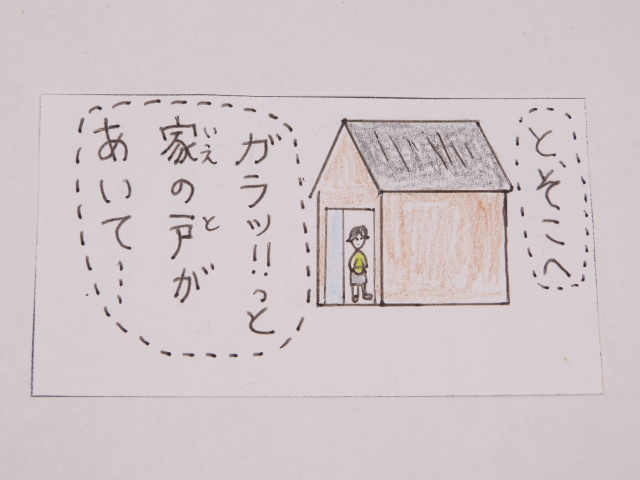 と、そこへ
ガラッ!!っと
家の戸が
あいて……
いえ
と